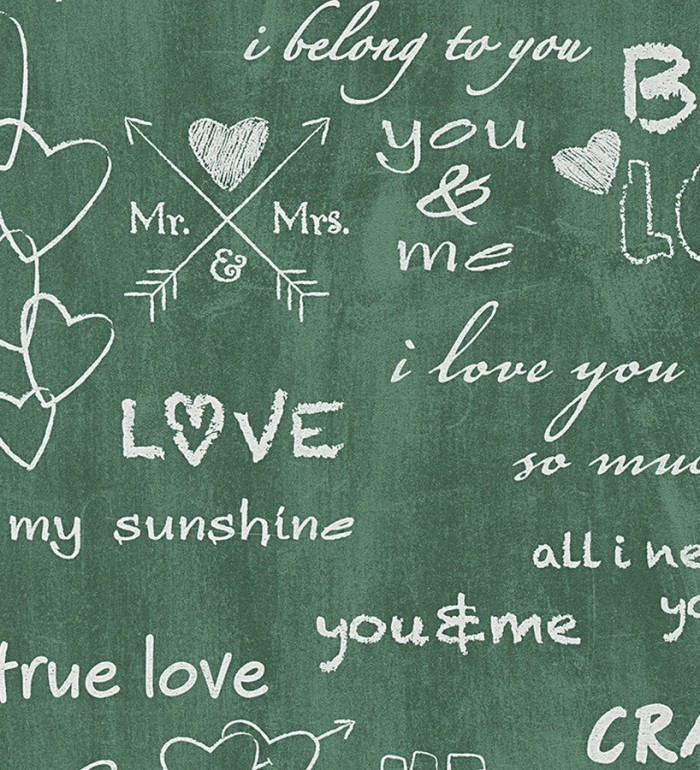 i belong to you
you
&
me
Mr. & Mrs.
i love you
so muc
LOVE
my sunshine
all i ne
yo
you & me
true love
CRA
B
LO